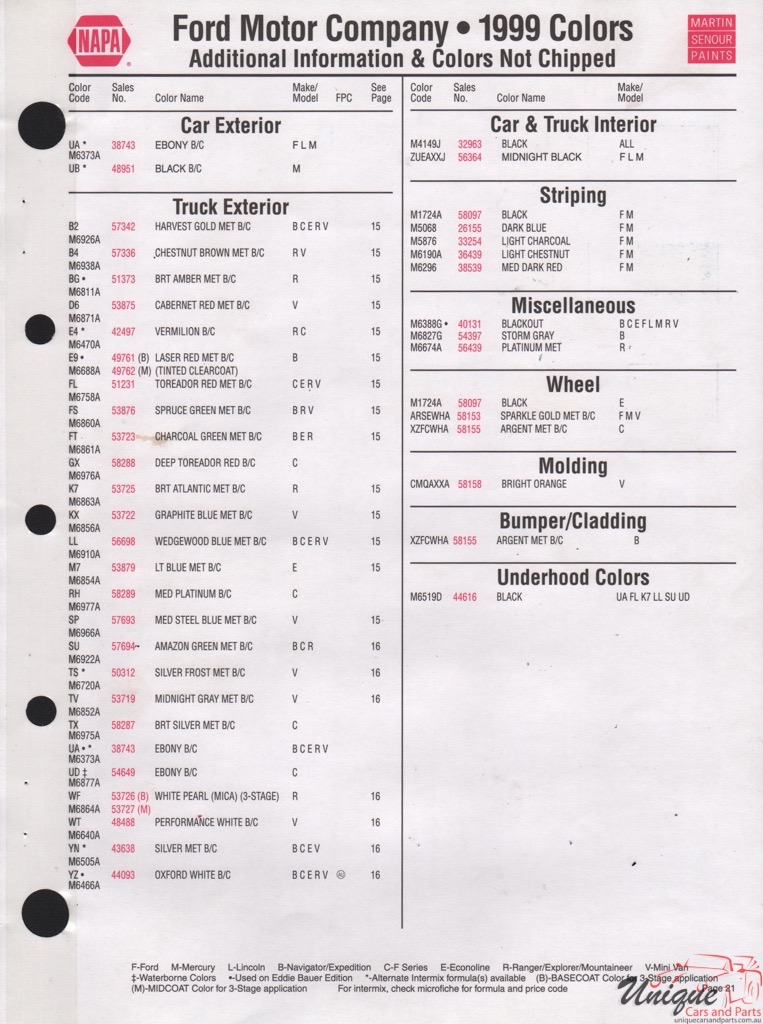 NAPA
Ford Motor Company • 1999 Colors
Additional Information & Colors Not Chipped
MARTIN
SENOUR
PAINTS
Color Code Sales No. Color Name Make/Model FPC See Page
Car Exterior
UA * 38743 EBONY B/C F L M
M6373A
UB * 48951 BLACK B/C M
Truck Exterior
B2 57342 HARVEST GOLD MET B/C B C E R V 15
M6926A
B4 57336 CHESTNUT BROWN MET B/C R V 15
M6938A
BG • 51373 BRT AMBER MET B/C R 15
M6811A
D6 53875 CABERNET RED MET B/C V 15
M6871A
E4 * 42497 VERMILION B/C R C 15
M6470A
E9 • 49761 (B) LASER RED MET B/C B 15
M6688A 49762 (M) (TINTED CLEARCOAT)
FL 51231 TOREADOR RED MET B/C C E R V 15
M6758A
FS 53876 SPRUCE GREEN MET B/C B R V 15
M6860A
FT 53723 CHARCOAL GREEN MET B/C B E R 15
M6861A
GX 58288 DEEP TOREADOR RED B/C C
M6976A
K7 53725 BRT ATLANTIC MET B/C R 15
M6863A
KX 53722 GRAPHITE BLUE MET B/C V 15
M6856A
LL 56698 WEDGEWOOD BLUE MET B/C B C E R V 15
M6910A
M7 53879 LT BLUE MET B/C E 15
M6854A
RH 58289 MED PLATINUM B/C C
M6977A
SP 57693 MED STEEL BLUE MET B/C V 15
M6966A
SU 57694 AMAZON GREEN MET B/C B C R 16
M6922A
TS * 50312 SILVER FROST MET B/C V 16
M6720A
TV 53719 MIDNIGHT GRAY MET B/C V 16
M6852A
TX 58287 BRT SILVER MET B/C C
M6975A
UA • * 38743 EBONY B/C B C E R V
M6373A
UD ‡ 54649 EBONY B/C C
M6877A
WF 53726 (B) WHITE PEARL (MICA) (3-STAGE) R 16
M6864A 53727 (M)
WT 48488 PERFORMANCE WHITE B/C V 16
M6640A
YN * 43638 SILVER MET B/C B C E V 16
M6505A
YZ • 44093 OXFORD WHITE B/C B C E R V 16
M6466A
Color Code Sales No. Color Name Make/Model
Car & Truck Interior
M4149J 32963 BLACK ALL
ZUEAXXJ 56364 MIDNIGHT BLACK F L M
Striping
M1724A 58097 BLACK F M
M5068 26155 DARK BLUE F M
M5876 33254 LIGHT CHARCOAL F M
M6190A 36439 LIGHT CHESTNUT F M
M6296 38539 MED DARK RED F M
Miscellaneous
M6388G • 40131 BLACKOUT B C E F L M R V
M6827G 54397 STORM GRAY B
M6674A 56439 PLATINUM MET R
Wheel
M1724A 58097 BLACK E
ARSEWHA 58153 SPARKLE GOLD MET B/C F M V
XZFCWHA 58155 ARGENT MET B/C C
Molding
CMQAXXA 58158 BRIGHT ORANGE V
Bumper/Cladding
XZFCWHA 58155 ARGENT MET B/C B
Underhood Colors
M6519D 44616 BLACK UA FL K7 LL SU UD
F-Ford M-Mercury L-Lincoln B-Navigator/Expedition C-F Series E-Econoline R-Ranger/Explorer/Mountaineer V-Mini Van
‡-Waterborne Colors •-Used on Eddie Bauer Edition *-Alternate Intermix formula(s) available (B)-BASECOAT Color for 3-Stage application
(M)-MIDCOAT Color for 3-Stage application For intermix, check microfiche for formula and price code Page 21
Unique
Cars and Parts
uniquecarsandparts.com.au